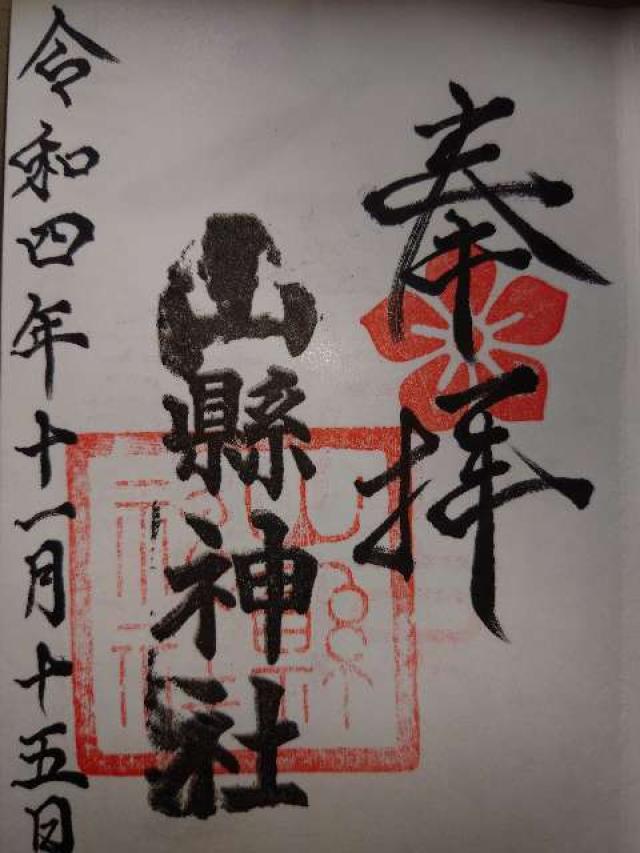 奉拝
山縣神社
山縣神社
令和四年十一月十五日